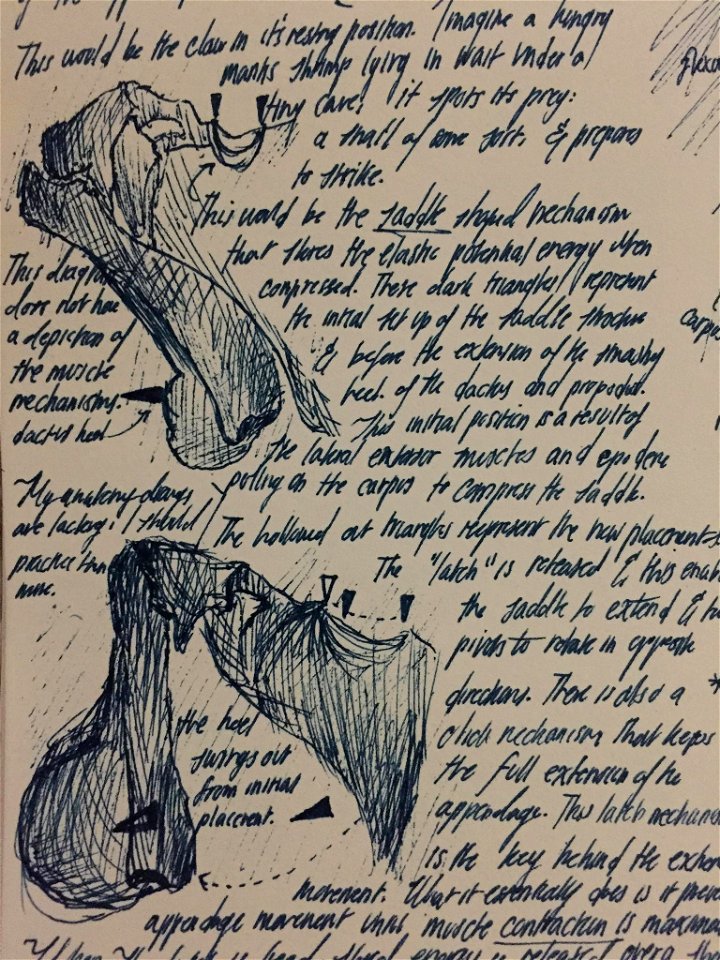 This would be the claw in it's resting position. Imagine a hungry
mantis shrimp lying in wait under a
tiny cave; it spots its prey:
a snail of some sort. & prepares
to strike.
This would be the saddle shaped mechanism
that stores the elastic potential energy when
compressed. These dark triangles represent
the initial set up of the saddle structure
& before the extension of the smashy
heel. of the dactus and propodus.
This initial position is a result of
the lateral extensor muscles and
pulling on the carpus to compress the saddle.
This diagram
does not have
a depiction of
the muscle
mechanisms.
dactus heel
My anatomy drawings
are lacking; I should
practice them
more.
The hollowed out triangles represent the new placement
The "latch" is released & this
the saddle to extend &
pivots to rotate in opposite
directions. There is also a
click mechanism that keeps
the full extension of the
appendage. This latch
is the key behind the
movement. What it essentially does is it
appendage movement until muscle contraction is
the heel
swings out
from initial
placement.
energy is released over a